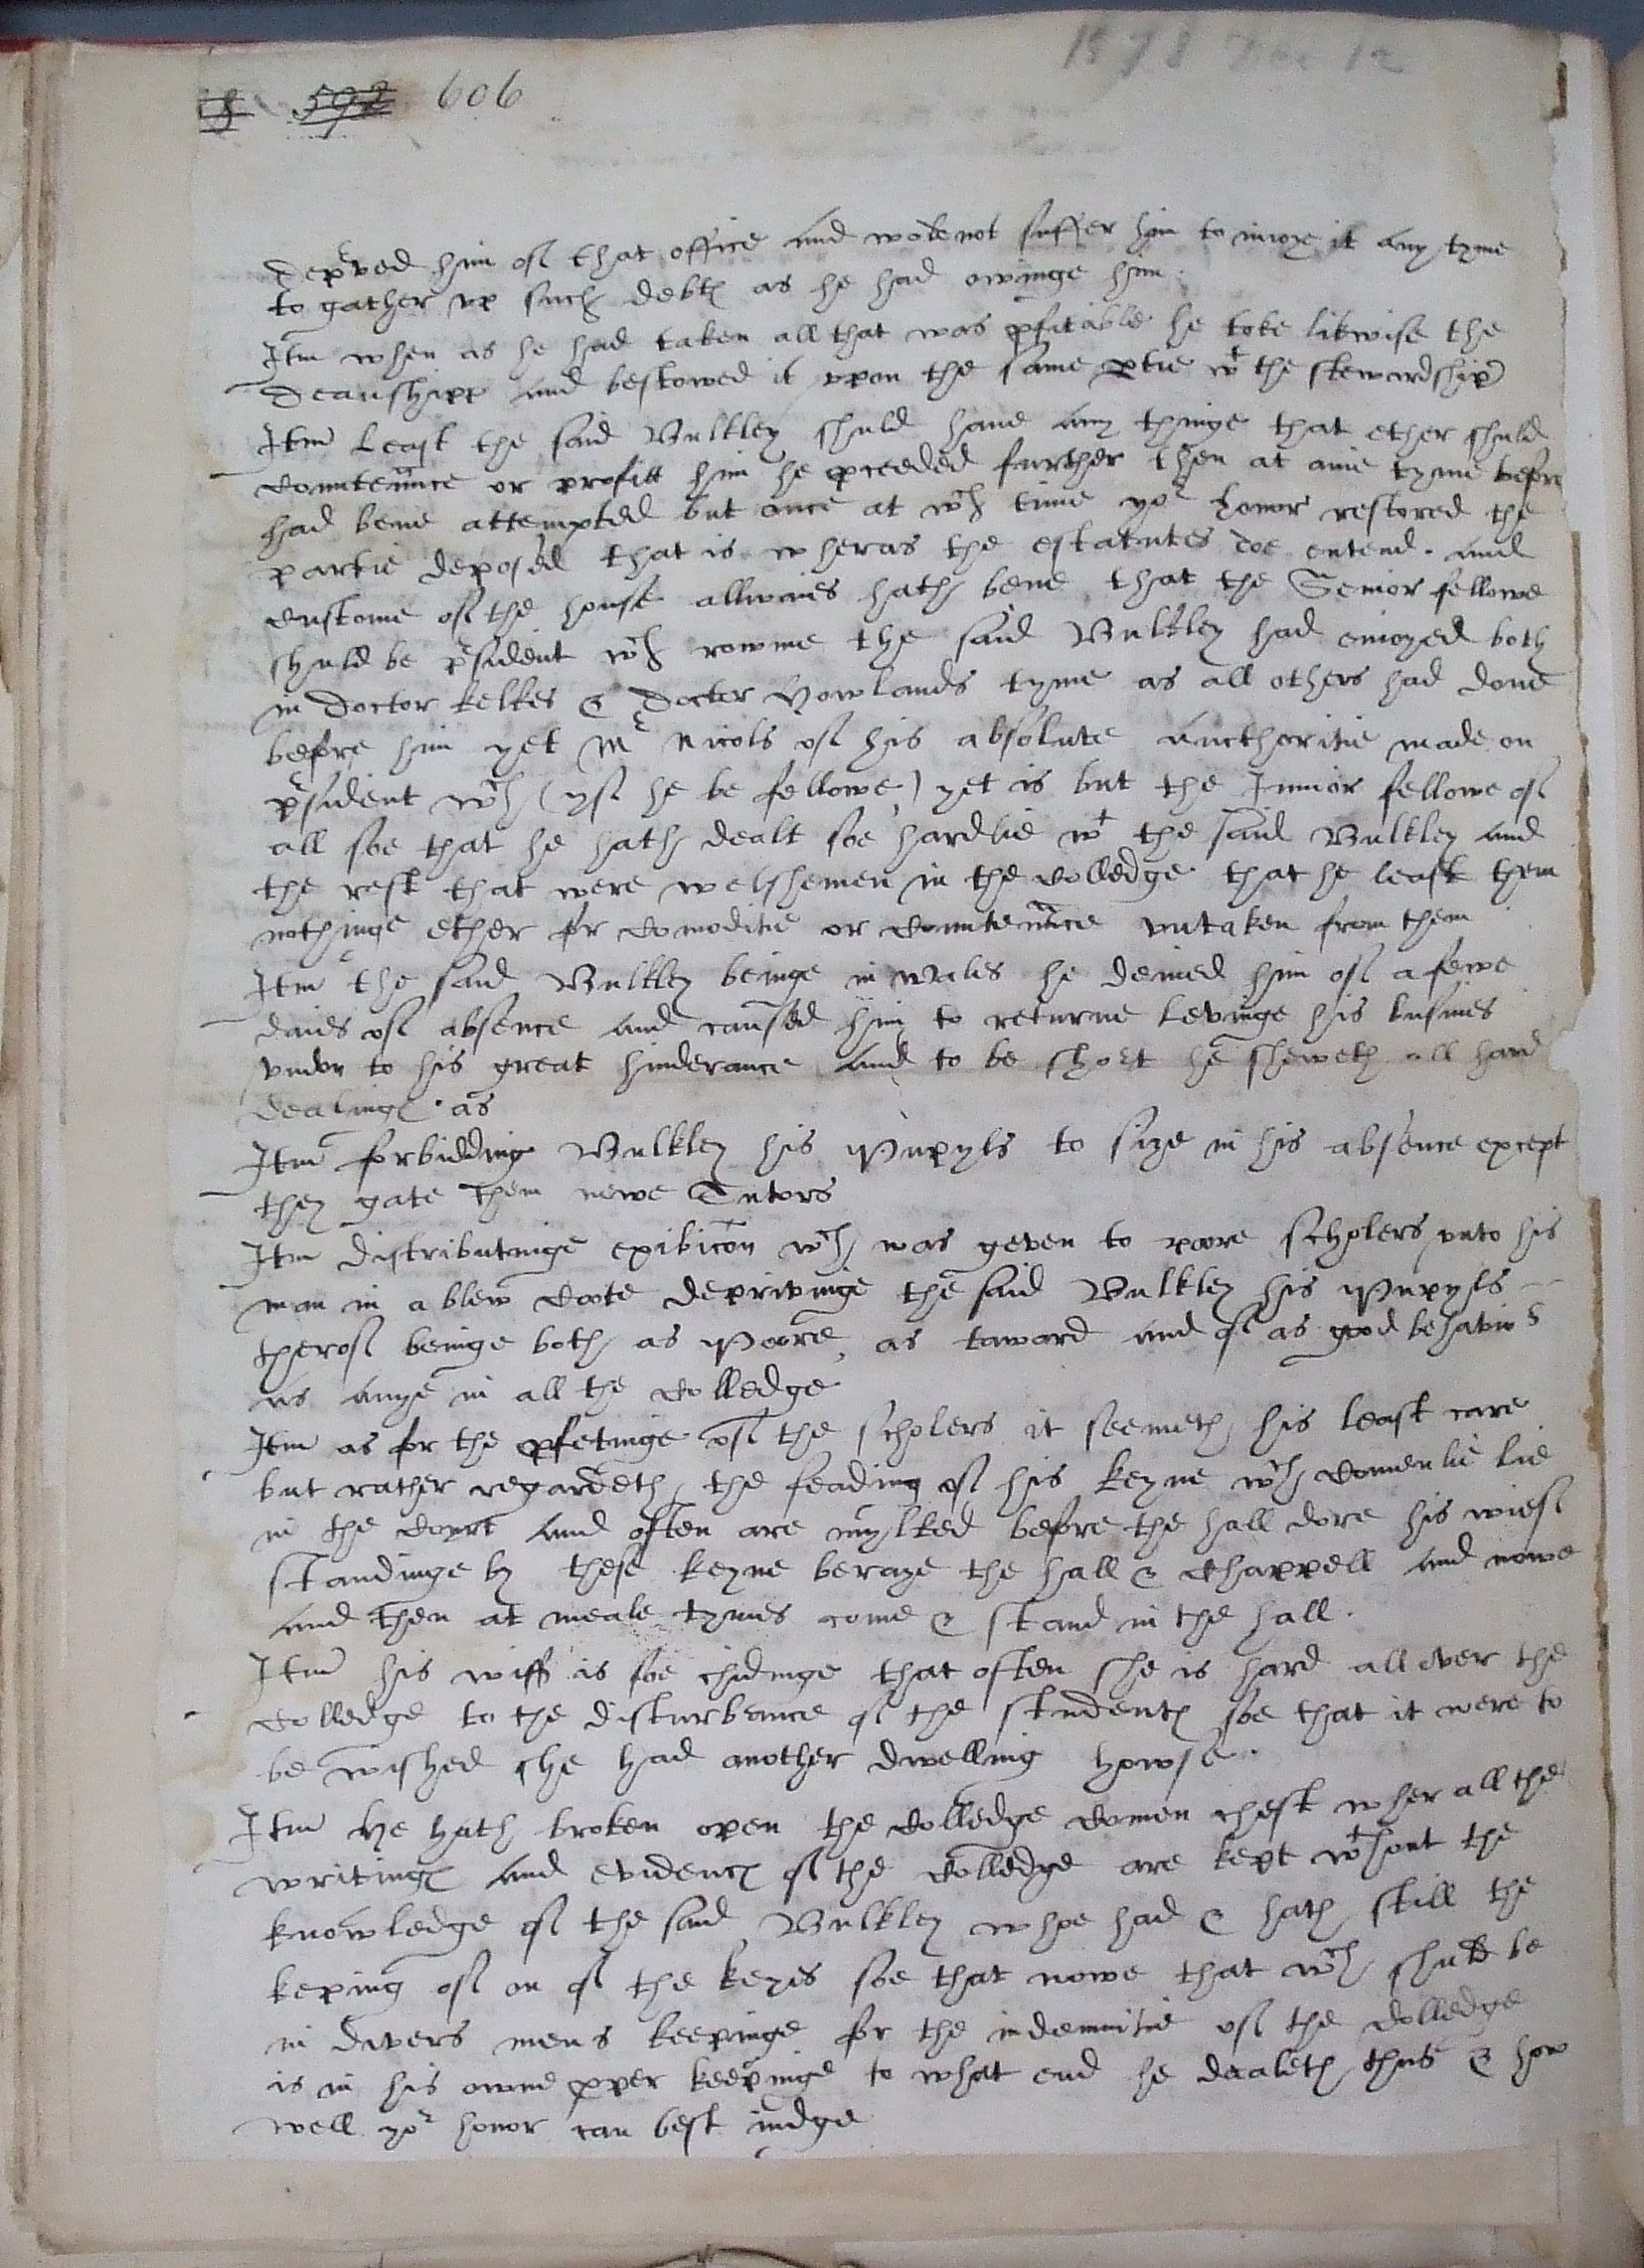 1578 Dec 12
592 606
depʳved him of that office and wolde not suffer him to inioye it any tyme
to gather vp such debtℯ as he had owinge him.
Itm when as he had taken all that was pfitable he toke likwise the
Deanshipp and bestowed it vpon the same ptie wᵗ the stewardship
Itm Least the said Bulkley shuld haue any thinge that ether shuld
countenᵃnce or profitt him he pceeded further then at anie tyme before
had bene attempted but once at wᶜʰ time yoʳ honor restored the
partie deposed that is wheras the estatutes doe entend. and
custome of the house allwaies hath bene that the Senior fellowe
shuld be pʳsident wᶜʰ rowme the said Bulkley had enioyed both
in Doctor kelkes & Docter Howlands tyme as all others had done
before him yet Mʳ Nicols of his absolute aucthoritie made on
pʳsident wᶜʰ (yf he be fellowe) yet is but the Iunior fellowe of
all soe that he hath dealt soe hardlie wᵗ the said Bulkley and
the rest that were welshemen in the colledge that he least them
nothinge ether for comoditie or countenᵃnce vntaken from them
Itm the said Bulkley beinge in wales he denied him of a fewe
daies of absence and caused him to returne levinge his busines
vndon to his great hinderance and to be short he sheweth all hard
dealingℯ. as
Itm forbidding Bulkley his pupyls to size in his absence except
they gate them newe Tutors
Itm distributinge exibicon wᶜʰ was geven to poore scholers vnto his
man in a blew coote depriving the said Bulkley his pupyls
therof beinge both as poore, as toward and of as good behavioʳ
as anye in all the colledge
Itm as for the pfetinge of the scholers it seemeth his least care
but rather regardeth the feading of his keyne wᶜʰ comenlie lie
in the court and often are mylked before the hall dore his wief
standinge by these keyne beraye the hall & chappell and nowe
and then at meale tymes come & stand in the hall.
Itm his wiff is soe chidinge that often she is hard all over the
colledge to the disturbance of the studentℯ soe that it were to
be wished she had another dwelling howse.
Itm he hath broken open the colledge comen chest wher all the
writingℯ and evidencℯ of the colledge are kept wᵗhout the
knowledge of the said Bulkley whoe had & hath still the
keping of on of the keyes soe that nowe that wᶜʰ shuld be
in divers mens keepinge for the indemnitie of the colledge
is in his owne pper keepinge to what end he dealeth thus & how
well yoʳ honor can best iudge